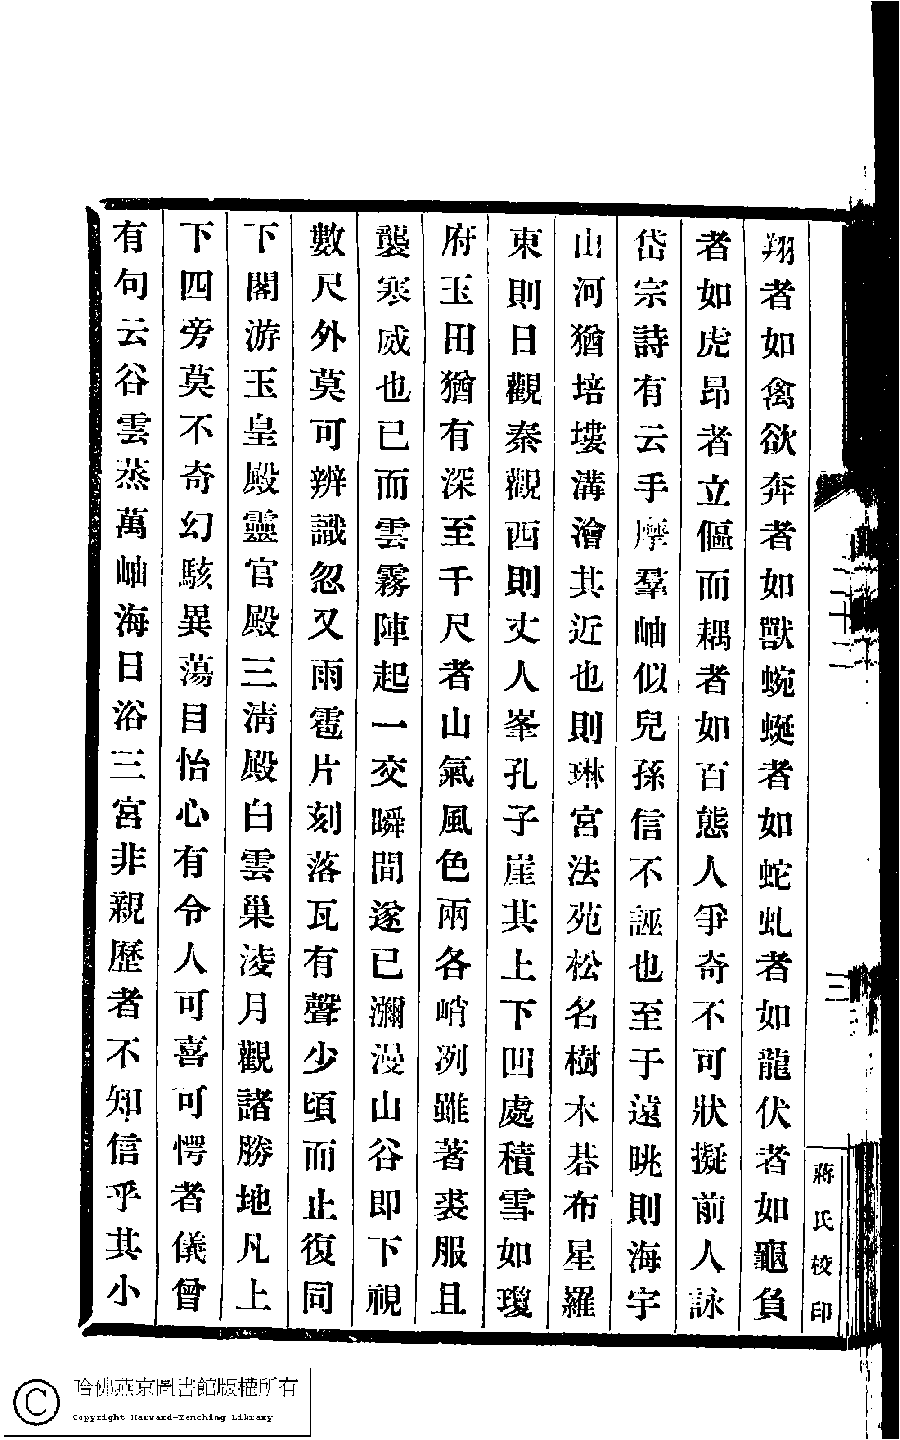 翔者如禽欲奔者如獸蜿蜒者如蛇虬者如龍伏者如龜負
者如虎昂者立傴而耦者如百態人爭奇不可狀擬前人詠
岱宗詩有云手摩羣岫似兒孫信不誣也至于遠眺則海宇
山河猶培塿溝澮其近也則琳宮法苑松名樹木棊布星羅
東則日觀秦觀西則丈人峯孔子崖其上下凹處積雪如瓊
府玉田猶有深至千尺者山氣風色兩各峭冽雖著裘服且
襲寒威也已而雲霧陣起一交瞬間遂已瀰漫山谷即下視
數尺外莫可辨識忽又雨雹片刻落瓦有聲少頃而止復同
下閣游玉皇殿靈官殿三清殿白雲巢淩月觀諸勝地凡上
下四旁莫不奇幻駭異蕩目怡心有令人可喜可愕者儀曾
有句云谷雲蒸萬岫海日浴三宮非親歷者不知信乎其小
二十二
三
蔣氏校印
哈佛燕京圖書館版權所有
Copyright Harvard-Yenching Library